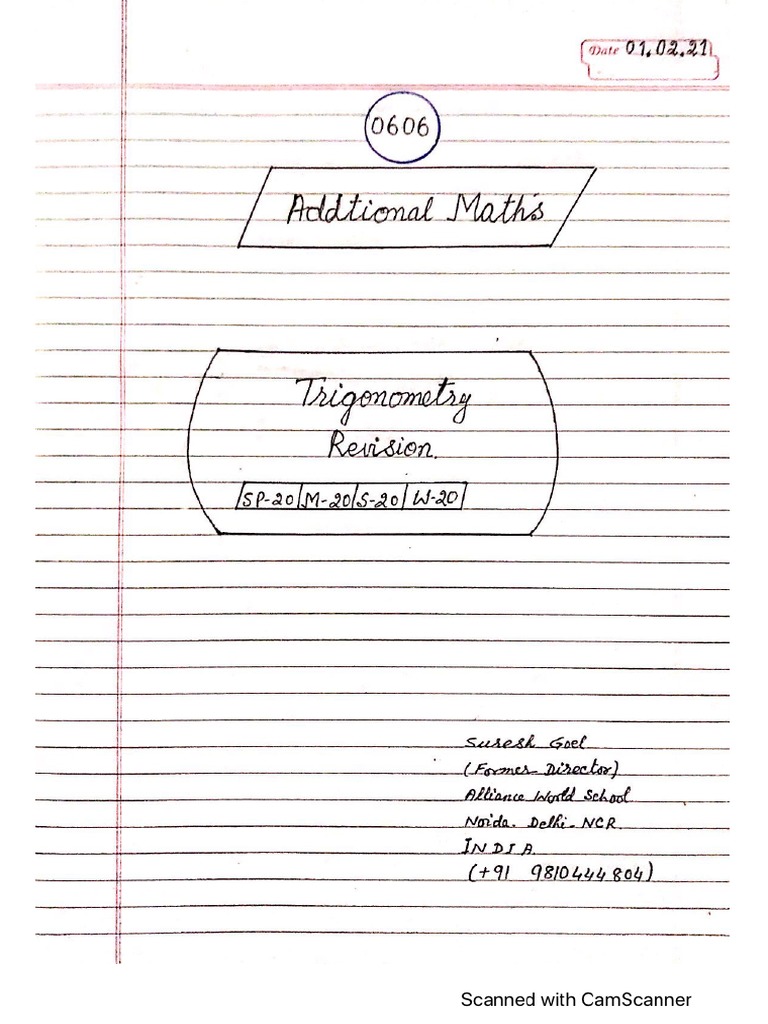 Date 01.02.21
0606
Addtional Maths
Trigonometry
Revision.
SP-20 M-20 S-20 W-20
Suresh Goel
(Former Director)
Alliance World School
Noida. Delhi-NCR
INDIA
(+91 9810444804)
Scanned with CamScanner